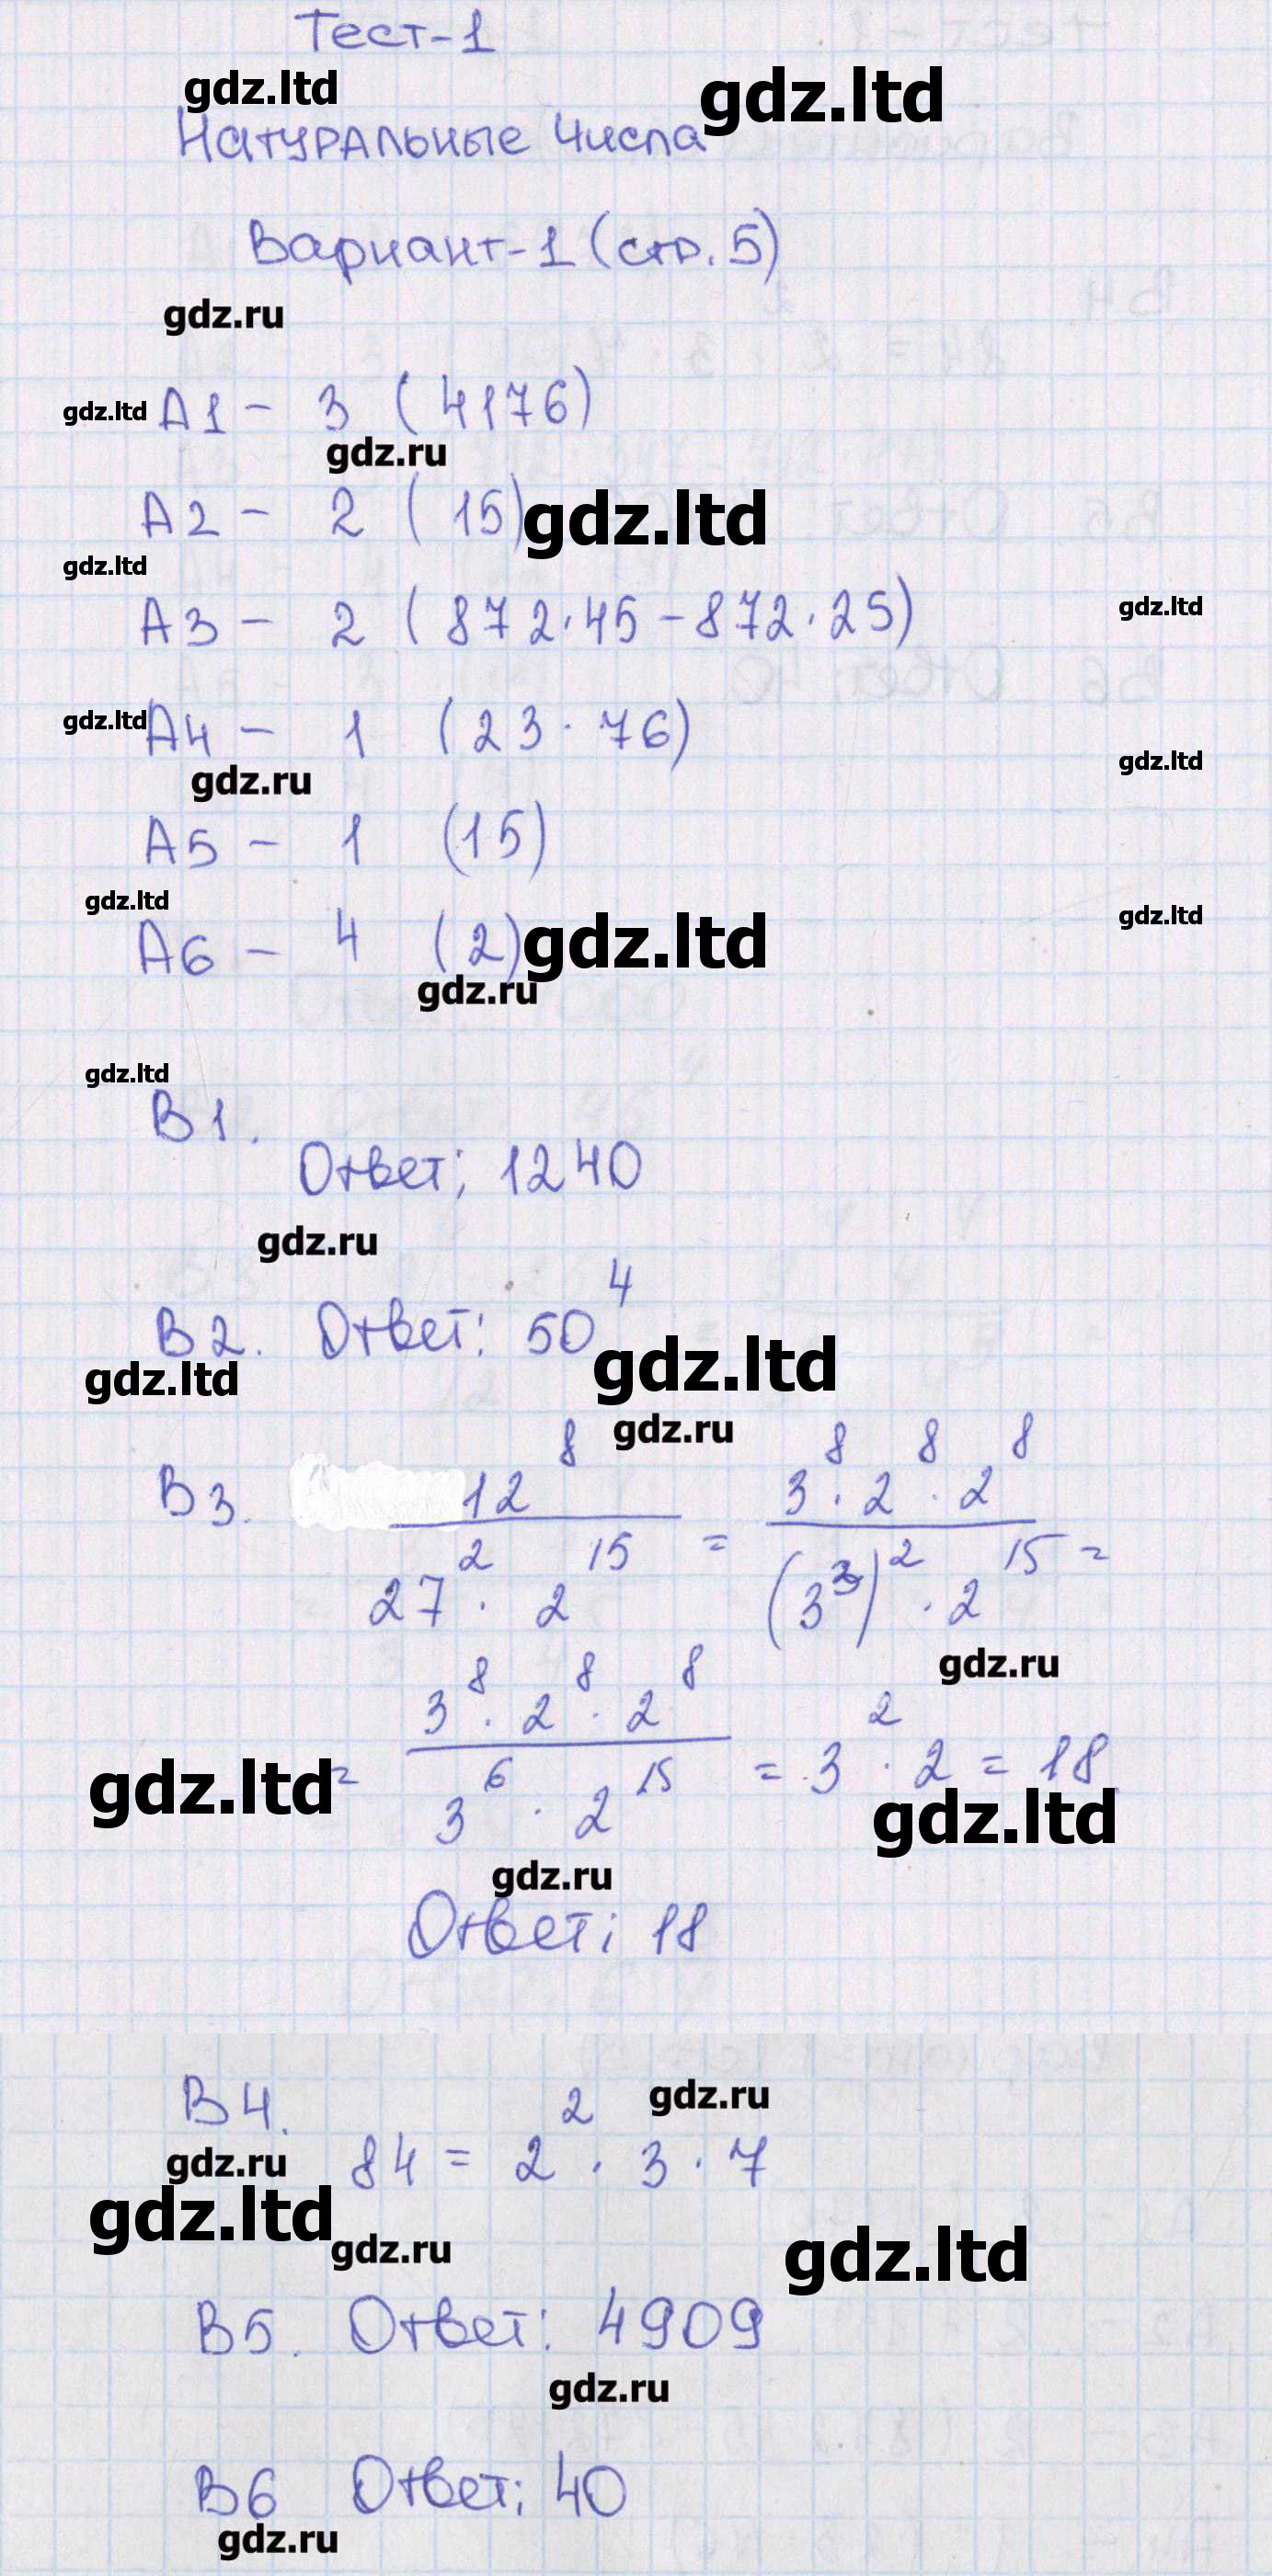 Тест-1
gdz.ltd gdz.ltd
Натуральные числа
Вариант-1 (стр. 5)
gdz.ru
gdz.ltd А1 - 3 (4176)
gdz.ru
А2 - 2 (15) gdz.ltd
gdz.ltd
А3 - 2 (872·45-872·25) gdz.ltd
gdz.ltd А4 - 1 (23·76)
gdz.ltd
gdz.ru
А5 - 1 (15)
gdz.ltd gdz.ltd
А6 - 4 (2) gdz.ltd
gdz.ru
gdz.ltd
В1.
Ответ: 1240
gdz.ru
В2. Ответ: 50⁴
gdz.ltd gdz.ltd
gdz.ru
В3. 12⁸ / 27²·2¹⁵ = 3⁸·2⁸·2⁸ / (3³)²·2¹⁵ =
gdz.ru
gdz.ltd = 3⁸·2⁸·2⁸ / 3⁶·2¹⁵ = 3²·2 = 18
gdz.ltd
gdz.ru
Ответ: 18
В4. gdz.ru
gdz.ru 84 = 2²·3·7
gdz.ltd gdz.ru gdz.ltd
В5. Ответ: 4909
gdz.ru
В6 Ответ: 40
gdz.ru